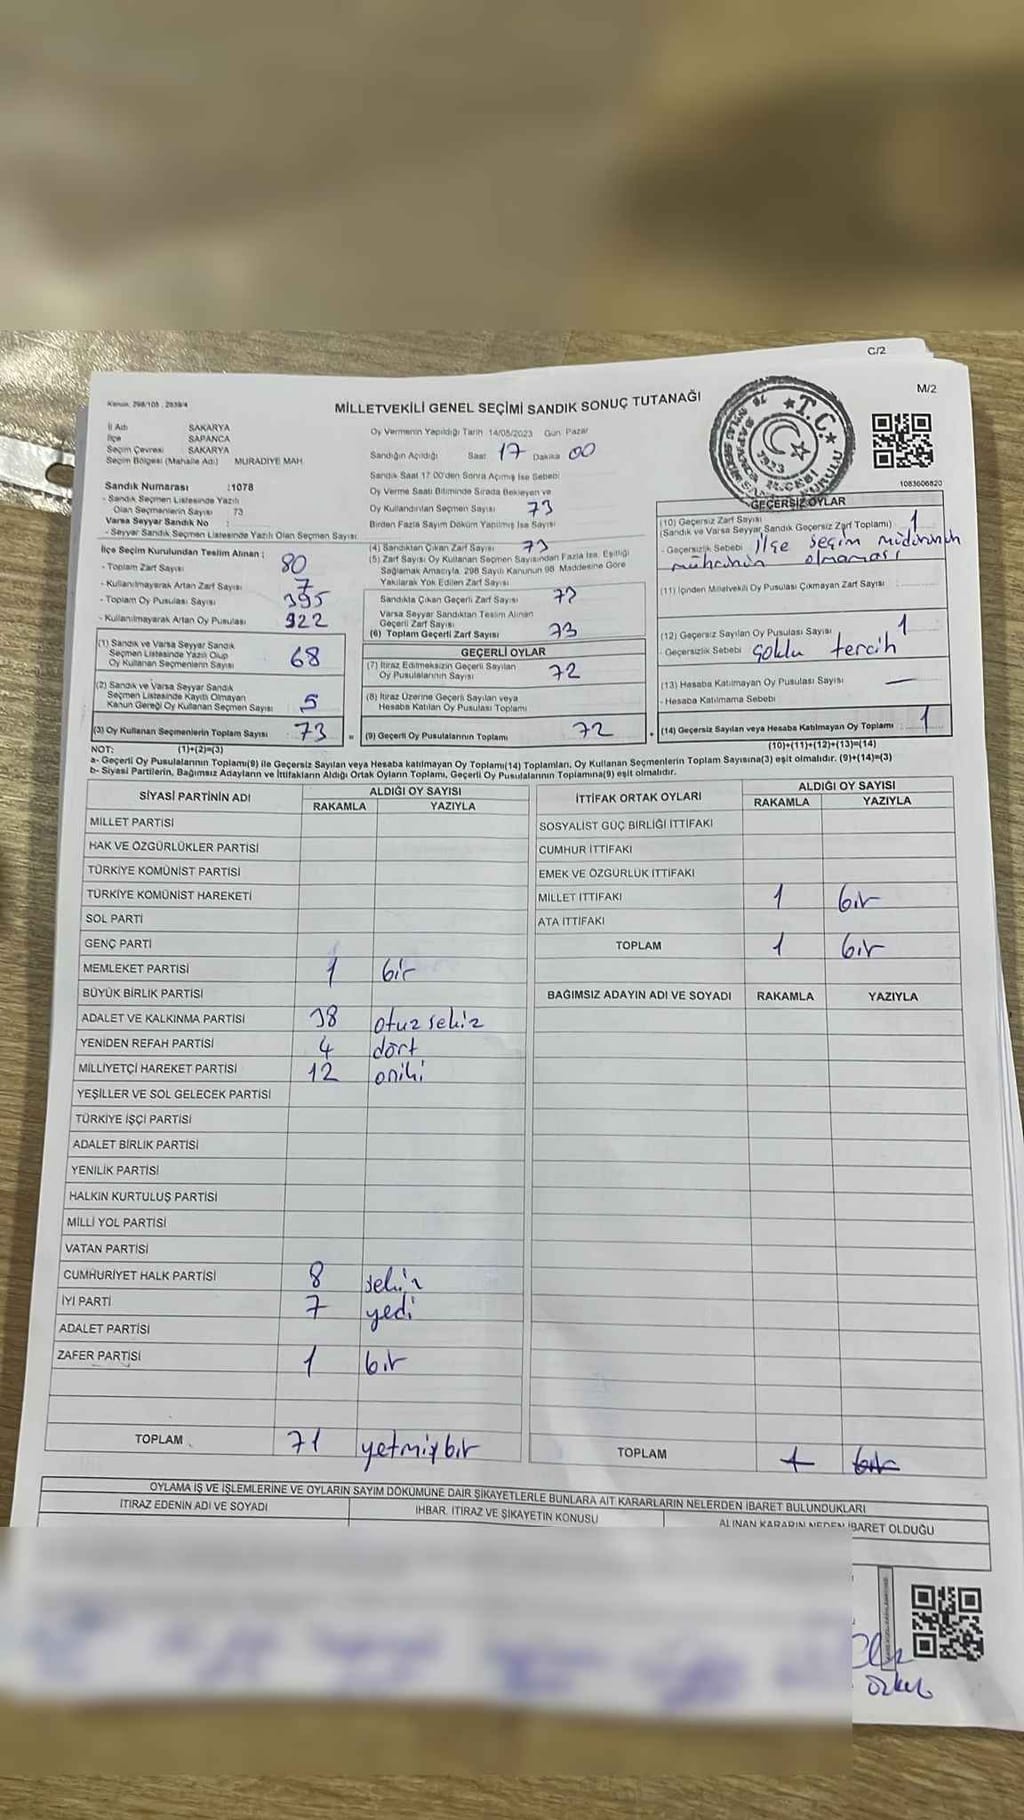 C/2
M/2
Kanun. 298/105 , 2839/4
MİLLETVEKİLİ GENEL SEÇİMİ SANDIK SONUÇ TUTANAĞI
İl Adı SAKARYA
İlçe SAPANCA
Seçim Çevresi SAKARYA
Seçim Bölgesi (Mahalle Adı) MURADİYE MAH.
Oy Vermenin Yapıldığı Tarih 14/05/2023 Gün Pazar
Sandığın Açıldığı Saat 17 Dakika 00
Sandık Saat 17.00'den Sonra Açımış İse Sebebi
Oy Verme Saati Bitiminde Sırada Bekleyen ve
Oy Kullandırılan Seçmen Sayısı 73
Birden Fazla Sayım Döküm Yapılmış İse Sayısı
T.C.
1083606820
Sandık Numarası :1078
- Sandık Seçmen Listesinde Yazılı
Olan Seçmenlerin Sayısı 73
Varsa Seyyar Sandık No :
- Seyyar Sandık Seçmen Listesinde Yazılı Olan Seçmen Sayısı:
İlçe Seçim Kurulundan Teslim Alınan ;
- Toplam Zarf Sayısı 80
- Kullanılmayarak Artan Zarf Sayısı 7
- Toplam Oy Pusulası Sayısı 395
- Kullanılmayarak Artan Oy Pusulası 322
(1) Sandık ve Varsa Seyyar Sandık
Seçmen Listesinde Yazılı Olup
Oy Kullanan Seçmenlerin Sayısı 68
(2) Sandık ve Varsa Seyyar Sandık
Seçmen Listesinde Kayıtlı Olmayan
Kanun Gereği Oy Kullanan Seçmen Sayısı: 5
(3) Oy Kullanan Seçmenlerin Toplam Sayısı 73
(1)+(2)=(3)
(4) Sandıktan Çıkan Zarf Sayısı 73
(5) Zarf Sayısı Oy Kullanan Seçmen Sayısından Fazla İse, Eşitliği
Sağlamak Amacıyla, 298 Sayılı Kanunun 98. Maddesine Göre
Yakılarak Yok Edilen Zarf Sayısı
Sandıkta Çıkan Geçerli Zarf Sayısı
Varsa Seyyar Sandıktan Teslim Alınan
Geçerli Zarf Sayısı
(6) Toplam Geçerli Zarf Sayısı 73
GEÇERLİ OYLAR
(7) İtiraz Edilmeksizin Geçerli Sayılan
Oy Pusulalarının Sayısı 72
(8) İtiraz Üzerine Geçerli Sayılan veya
Hesaba Katılan Oy Pusulası Toplamı
= (9) Geçerli Oy Pusulalarının Toplamı 72
GEÇERSİZ OYLAR
(10) Geçersiz Zarf Sayısı 1
(Sandık ve Varsa Seyyar Sandık Geçersiz Zarf Toplamı)
- Geçersizlik Sebebi ilçe seçim müdürünün
mührünün olmaması
(11) İçinden Milletvekili Oy Pusulası Çıkmayan Zarf Sayısı
(12) Geçersiz Sayılan Oy Pusulası Sayısı 1
- Geçersizlik Sebebi çoklu tercih
(13) Hesaba Katılmayan Oy Pusulası Sayısı —
- Hesaba Katılmama Sebebi
+ (14) Geçersiz Sayılan veya Hesaba Katılmayan Oy Toplamı 1
(10)+(11)+(12)+(13)=(14)
NOT:
a- Geçerli Oy Pusulalarının Toplamı(9) ile Geçersiz Sayılan veya Hesaba katılmayan Oy Toplamı(14) Toplamları, Oy Kullanan Seçmenlerin Toplam Sayısına(3) eşit olmalıdır. (9)+(14)=(3)
b- Siyasi Partilerin, Bağımsız Adayların ve İttifakların Aldığı Ortak Oyların Toplamı, Geçerli Oy Pusulalarının Toplamına(9) eşit olmalıdır.
SİYASİ PARTİNİN ADI ALDIĞI OY SAYISI
RAKAMLA YAZIYLA
MİLLET PARTİSİ
HAK VE ÖZGÜRLÜKLER PARTİSİ
TÜRKİYE KOMÜNİST PARTİSİ
TÜRKİYE KOMÜNİST HAREKETİ
SOL PARTİ
GENÇ PARTİ
MEMLEKET PARTİSİ 1 bir
BÜYÜK BİRLİK PARTİSİ
ADALET VE KALKINMA PARTİSİ 38 otuz sekiz
YENİDEN REFAH PARTİSİ 4 dört
MİLLİYETÇİ HAREKET PARTİSİ 12 oniki
YEŞİLLER VE SOL GELECEK PARTİSİ
TÜRKİYE İŞÇİ PARTİSİ
ADALET BİRLİK PARTİSİ
YENİLİK PARTİSİ
HALKIN KURTULUŞ PARTİSİ
MİLLİ YOL PARTİSİ
VATAN PARTİSİ
CUMHURİYET HALK PARTİSİ 8 sekiz
İYİ PARTİ 7 yedi
ADALET PARTİSİ
ZAFER PARTİSİ 1 bir
TOPLAM 71 yetmişbir
İTTİFAK ORTAK OYLARI ALDIĞI OY SAYISI
RAKAMLA YAZIYLA
SOSYALİST GÜÇ BİRLİĞİ İTTİFAKI
CUMHUR İTTİFAKI
EMEK VE ÖZGÜRLÜK İTTİFAKI
MİLLET İTTİFAKI 1 bir
ATA İTTİFAKI
TOPLAM 1 bir
BAĞIMSIZ ADAYIN ADI VE SOYADI RAKAMLA YAZIYLA
TOPLAM 1 bir
OYLAMA İŞ VE İŞLEMLERİNE VE OYLARIN SAYIM DÖKÜMÜNE DAİR ŞİKAYETLERLE BUNLARA AİT KARARLARIN NELERDEN İBARET BULUNDUKLARI
İTİRAZ EDENİN ADI VE SOYADI
İHBAR, İTİRAZ VE ŞİKAYETİN KONUSU
ALINAN KARARIN NEDEN İBARET OLDUĞU